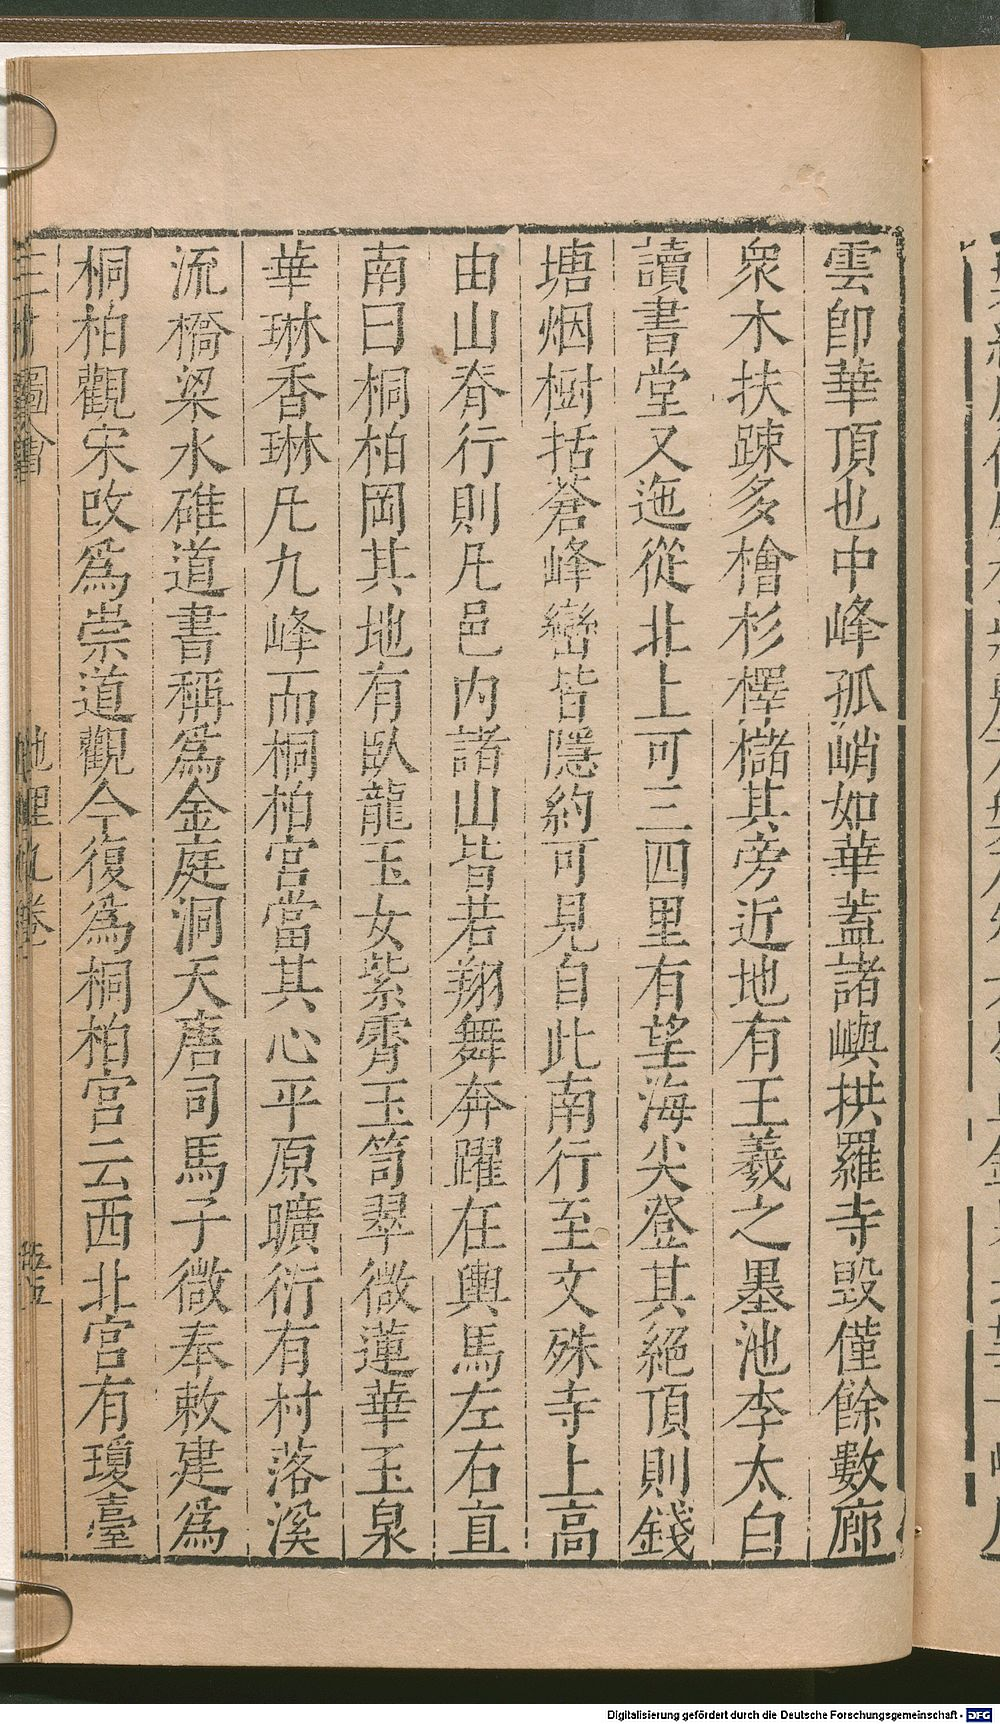 雲卽華頂也中峰孤峭如華蓋諸嶼拱羅寺毀僅餘數廊
衆木扶踈多檜杉檡櫧其旁近地有王羲之墨池李太白
讀書堂又迤從北上可三四里有望海尖登其絕頂則錢
塘烟樹括蒼峰巒皆隱約可見自此南行至文殊寺上高
由山脊行則凡邑内諸山皆若翔舞奔躍在輿馬左右直
南曰桐柏岡其地有臥龍玉女紫霄玉笥翠微蓮華玉泉
華琳香琳凡九峰而桐柏宮當其心平原曠衍有村落溪
流橋梁水碓道書稱爲金庭洞天唐司馬子微奉敕建爲
桐柏觀宋改爲崇道觀今復爲桐柏宮云西北宮有瓊臺
三才圖會 地理九卷
Digitalisierung gefördert durch die Deutsche Forschungsgemeinschaft - DFG